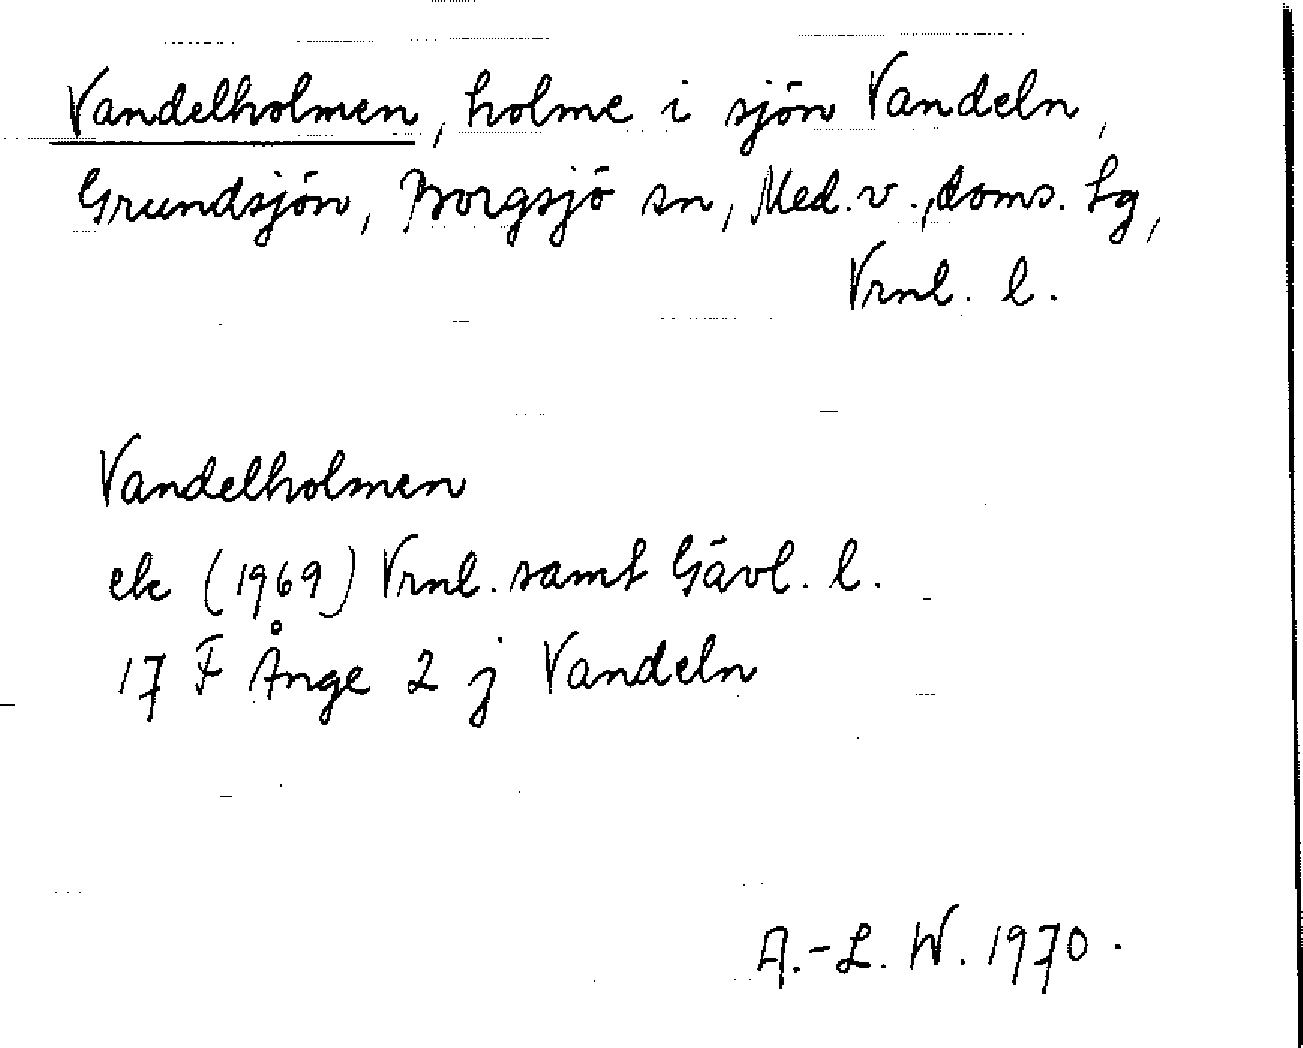 Vandelholmen, holme i sjön Vandeln,
Grundsjön, Borgsjö sn, Med. v., doms. tg,
Vrnl. l.
Vandelholmen
ek (1969) Vrnl. samt Gävl. l.
17 F Ånge 2 j Vandeln
A.-L. W. 1970.